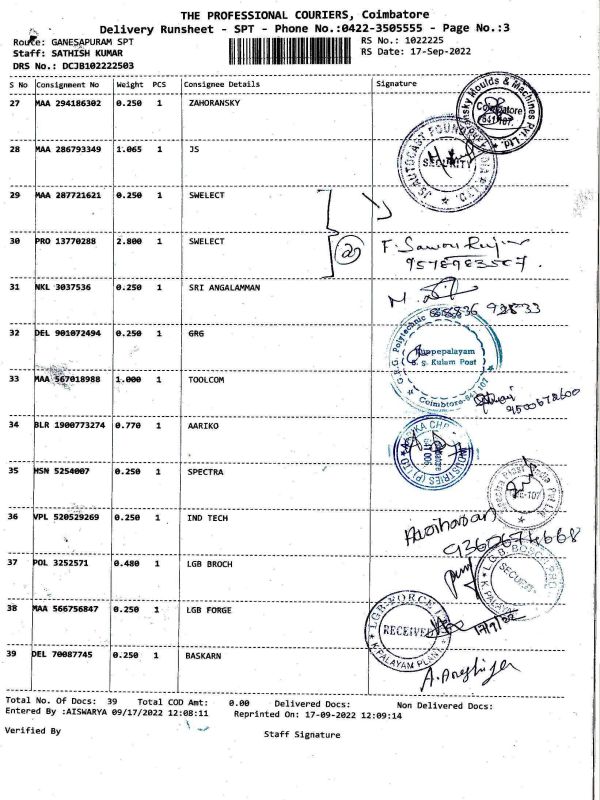 THE PROFESSIONAL COURIERS, Coimbatore
Delivery Runsheet - SPT - Phone No.:0422-3505555 - Page No.:3
Route: GANESAPURAM SPT
RS No.: 1022225
Staff: SATHISH KUMAR
RS Date: 17-Sep-2022
DRS No.: DCJB102222503
S No Consignment No Weight PCS Consignee Details Signature
27 MAA 294186302 0.250 1 ZAHORANSKY
Moulds & Machines Pvt. Ltd.
Coimbatore
641 107.
28 MAA 286793349 1.065 1 JS
JS AUTOCAST FOUNDRY INDIA LTD.
SECURITY
29 MAA 287721621 0.250 1 SWELECT
30 PRO 13770288 2.800 1 SWELECT
2
31 NKL 3037536 0.250 1 SRI ANGALAMMAN
32 DEL 901072494 0.250 1 GRG
G.R.G. Polytechnic
Kuppepalayam
S. S. Kulam Post
Coimbtore-641 107
33 MAA 567018988 1.000 1 TOOLCOM
9500672600
34 BLR 1900773274 0.770 1 AARIKO
INDUSTRIES (P) LTD
641 006
35 HSN 5254007 0.250 1 SPECTRA
36 VPL 520529269 0.250 1 IND TECH
9360674668
37 POL 3252571 0.480 1 LGB BROCH
SECURITY
38 MAA 566756847 0.250 1 LGB FORGE
L.G.B-FORGE
RECEIVED
K.PALAYAM PLANT
17/9/22
39 DEL 70087745 0.250 1 BASKARN
Total No. Of Docs: 39 Total COD Amt: 0.00 Delivered Docs: Non Delivered Docs:
Entered By :AISWARYA 09/17/2022 12:08:11 Reprinted On: 17-09-2022 12:09:14
Verified By
Staff Signature